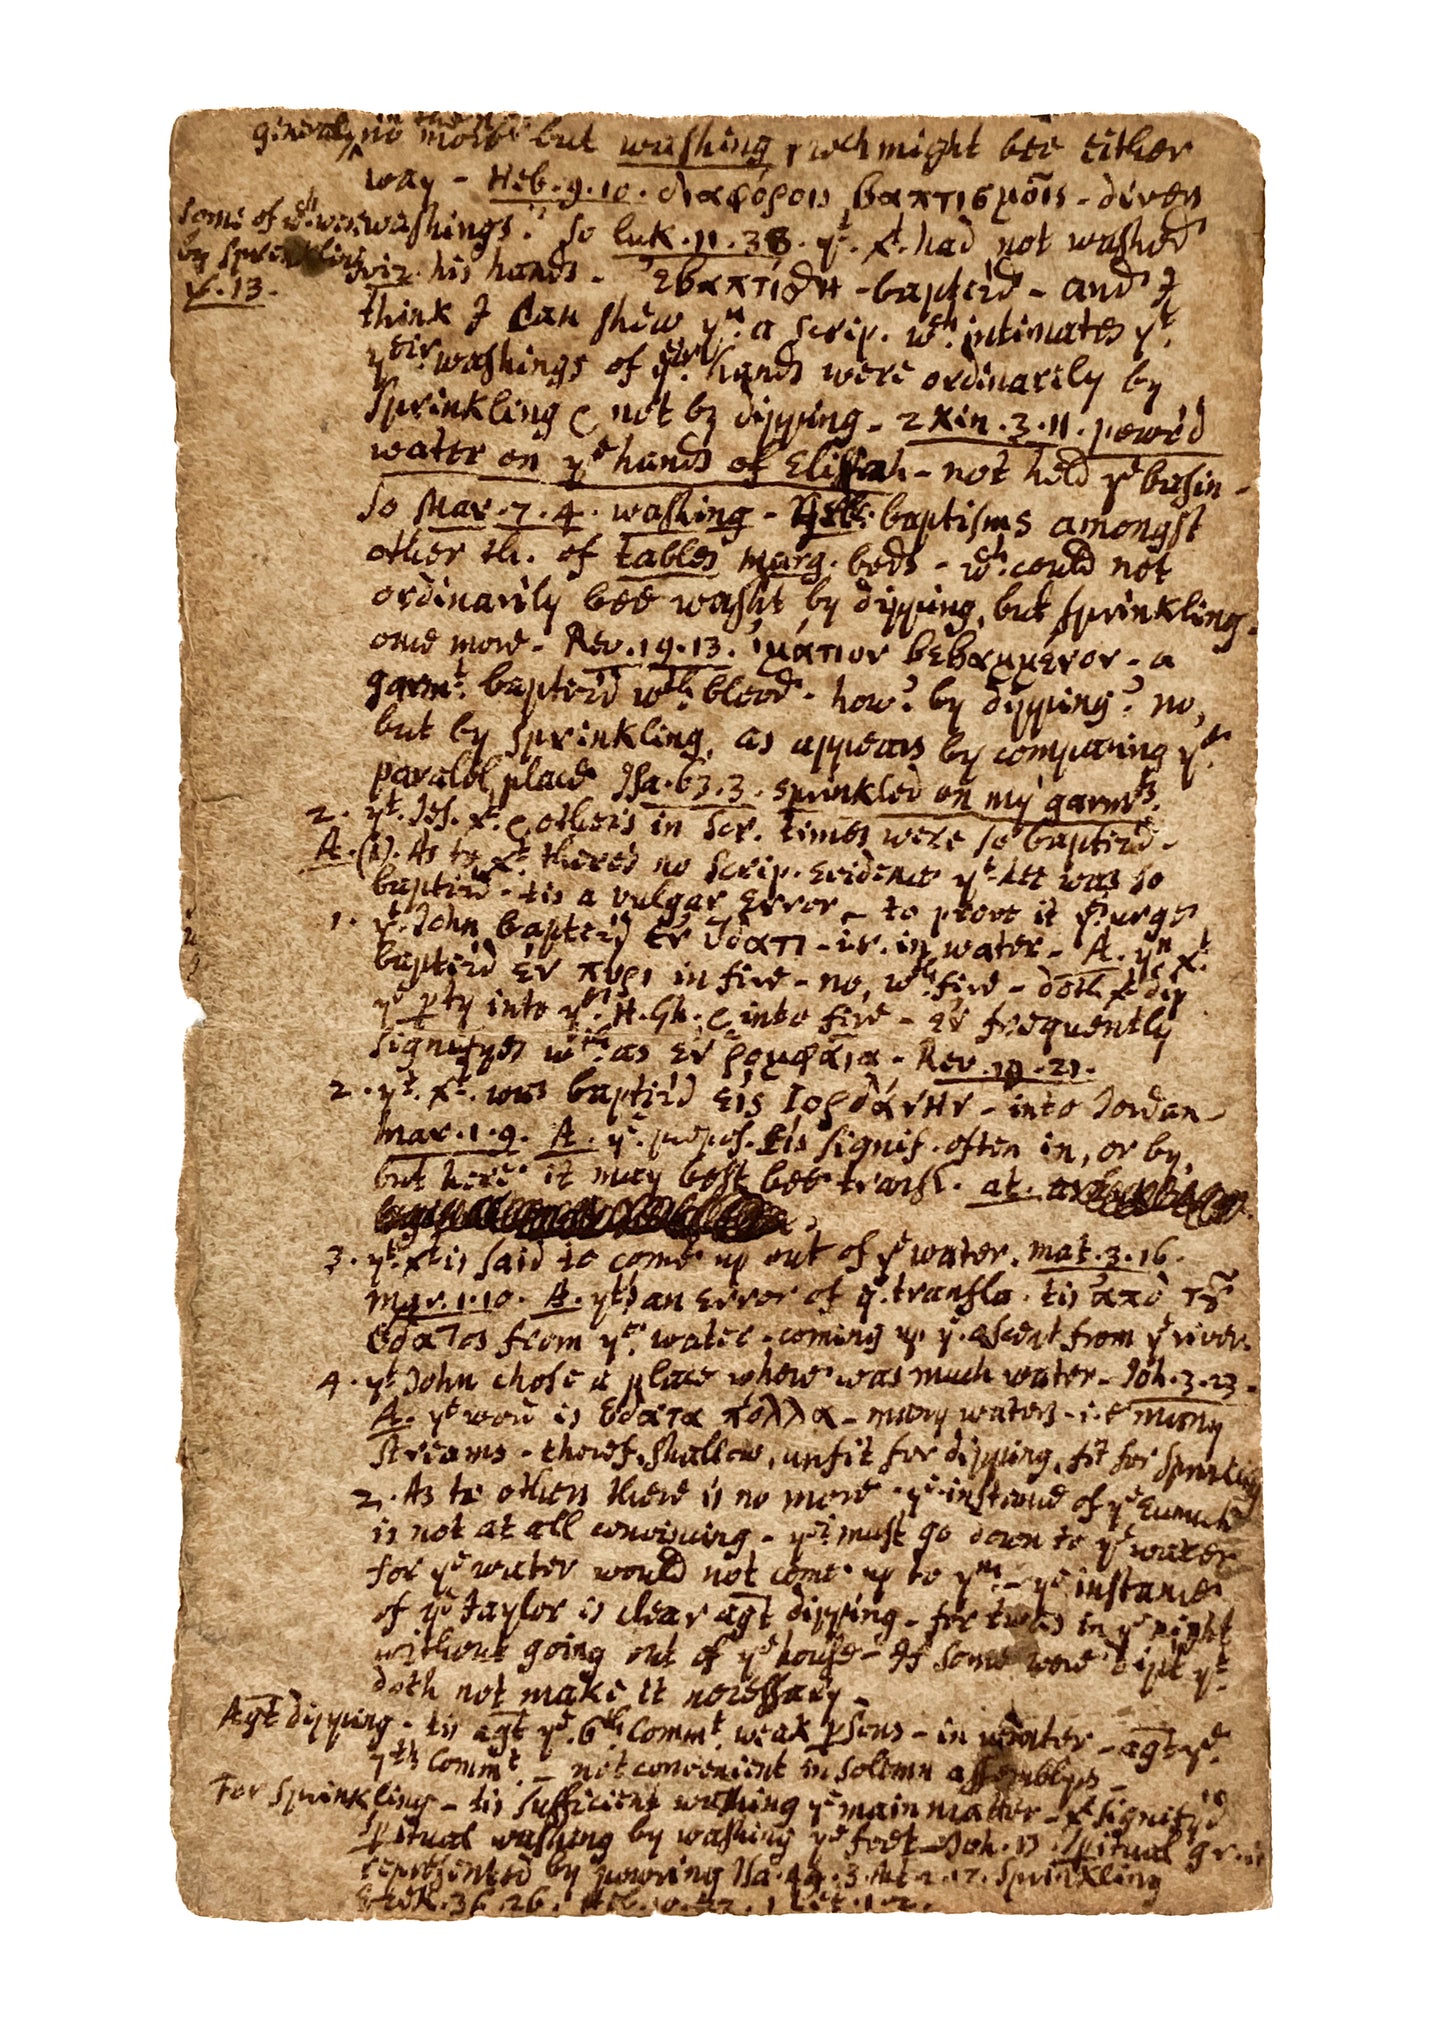 generally no more but washing, wch might bee either
way - Heb.9.10. διαφόροις βαπτισμοῖς - divers
some of wch. were washings. So luk.11.38. yt. Xt. had not washed
by sprinkling viz. his hands - ἐβαπτίσθη - baptiz'd - and I
v.13.
think I can shew yu. a scrip. wch. intimates yt.
yeir washings of yeir hands were ordinarily by
sprinkling & not by dipping - 2 Kin.3.11. powr'd
water on ye hands of Elijah - not held ye basin -
So Mar.7.4. washing - baptisms amongst
other th. of tables marg. beds - wch. could not
ordinarily bee washt by dipping, but sprinkling.
one more - Rev.19.13. ἱμάτιον βεβαμμενον - a
garmt. baptiz'd wth. blood - how? by dipping? no,
but by sprinkling, as appears by comparing ye.
paralel place Isa.63.3. sprinkled on my garmts.
2. yt. Jes. Xt. & others in Scr. times were so baptiz'd -
A. (1). As to Xt. there's no scrip. evidence yt. hee was so
baptiz'd - tis a vulgar error - to prove it yy. urge
1. yt. John baptiz'd ἐν ὕδατι - i.e. in water - A. yn Xt.
baptiz'd ἐν πυρι in fire - no, wth. fire - doth Xt dip
ye pty into ye. H. Gh. & into fire - ἐν frequently
signifyes wth. as ἐν ρομφαια - Rev.19.21.
2. yt. Xt. was baptiz'd εἰς Ιορδάνην - into Jordan -
Mar.1.9. A. ye. prepos. εἰς signif. often in, or by,
but here it may best bee transl. at.
3. yt. Xt is said to come up out of ye water. mat.3.16.
Mar.1.10. A. yts an error of ye. transla. tis ἀπὸ τȣ͂
ὕδατος from ye. water - coming up ye. ascent from ye river.
4. yt John chose a place where was much water - Joh.3.23 -
A. ye word is ὕδατα πολλα - many waters - i.e many
streams - theref. shallow, unfit for dipping, fit for sprinkling
2. As to others there is no more - ye instance of ye Eunuch
is not at all convincing - yei must go down to ye water
for ye water would not come up to ym. - ye instance
of ye Jaylor is clear agt dipping - for twas in ye night
without going out of ye house - If some were dipt yt.
doth not make it necessary -
Agt dipping - tis agt ye. 6th. Commt. weak psons - in winter - agt ye.
7th Commt. - not convenient in solemn assemblyes -
For sprinkling - tis sufficient washing ye main matter - Xt signify'd
spiritual washing by washing ye feet - Joh.13. spiritual
represented by powring Isa.44.3. Act.2.17. Sprinkling
Ezek.36.26. Heb.10.22. 1 Pet.1.2.